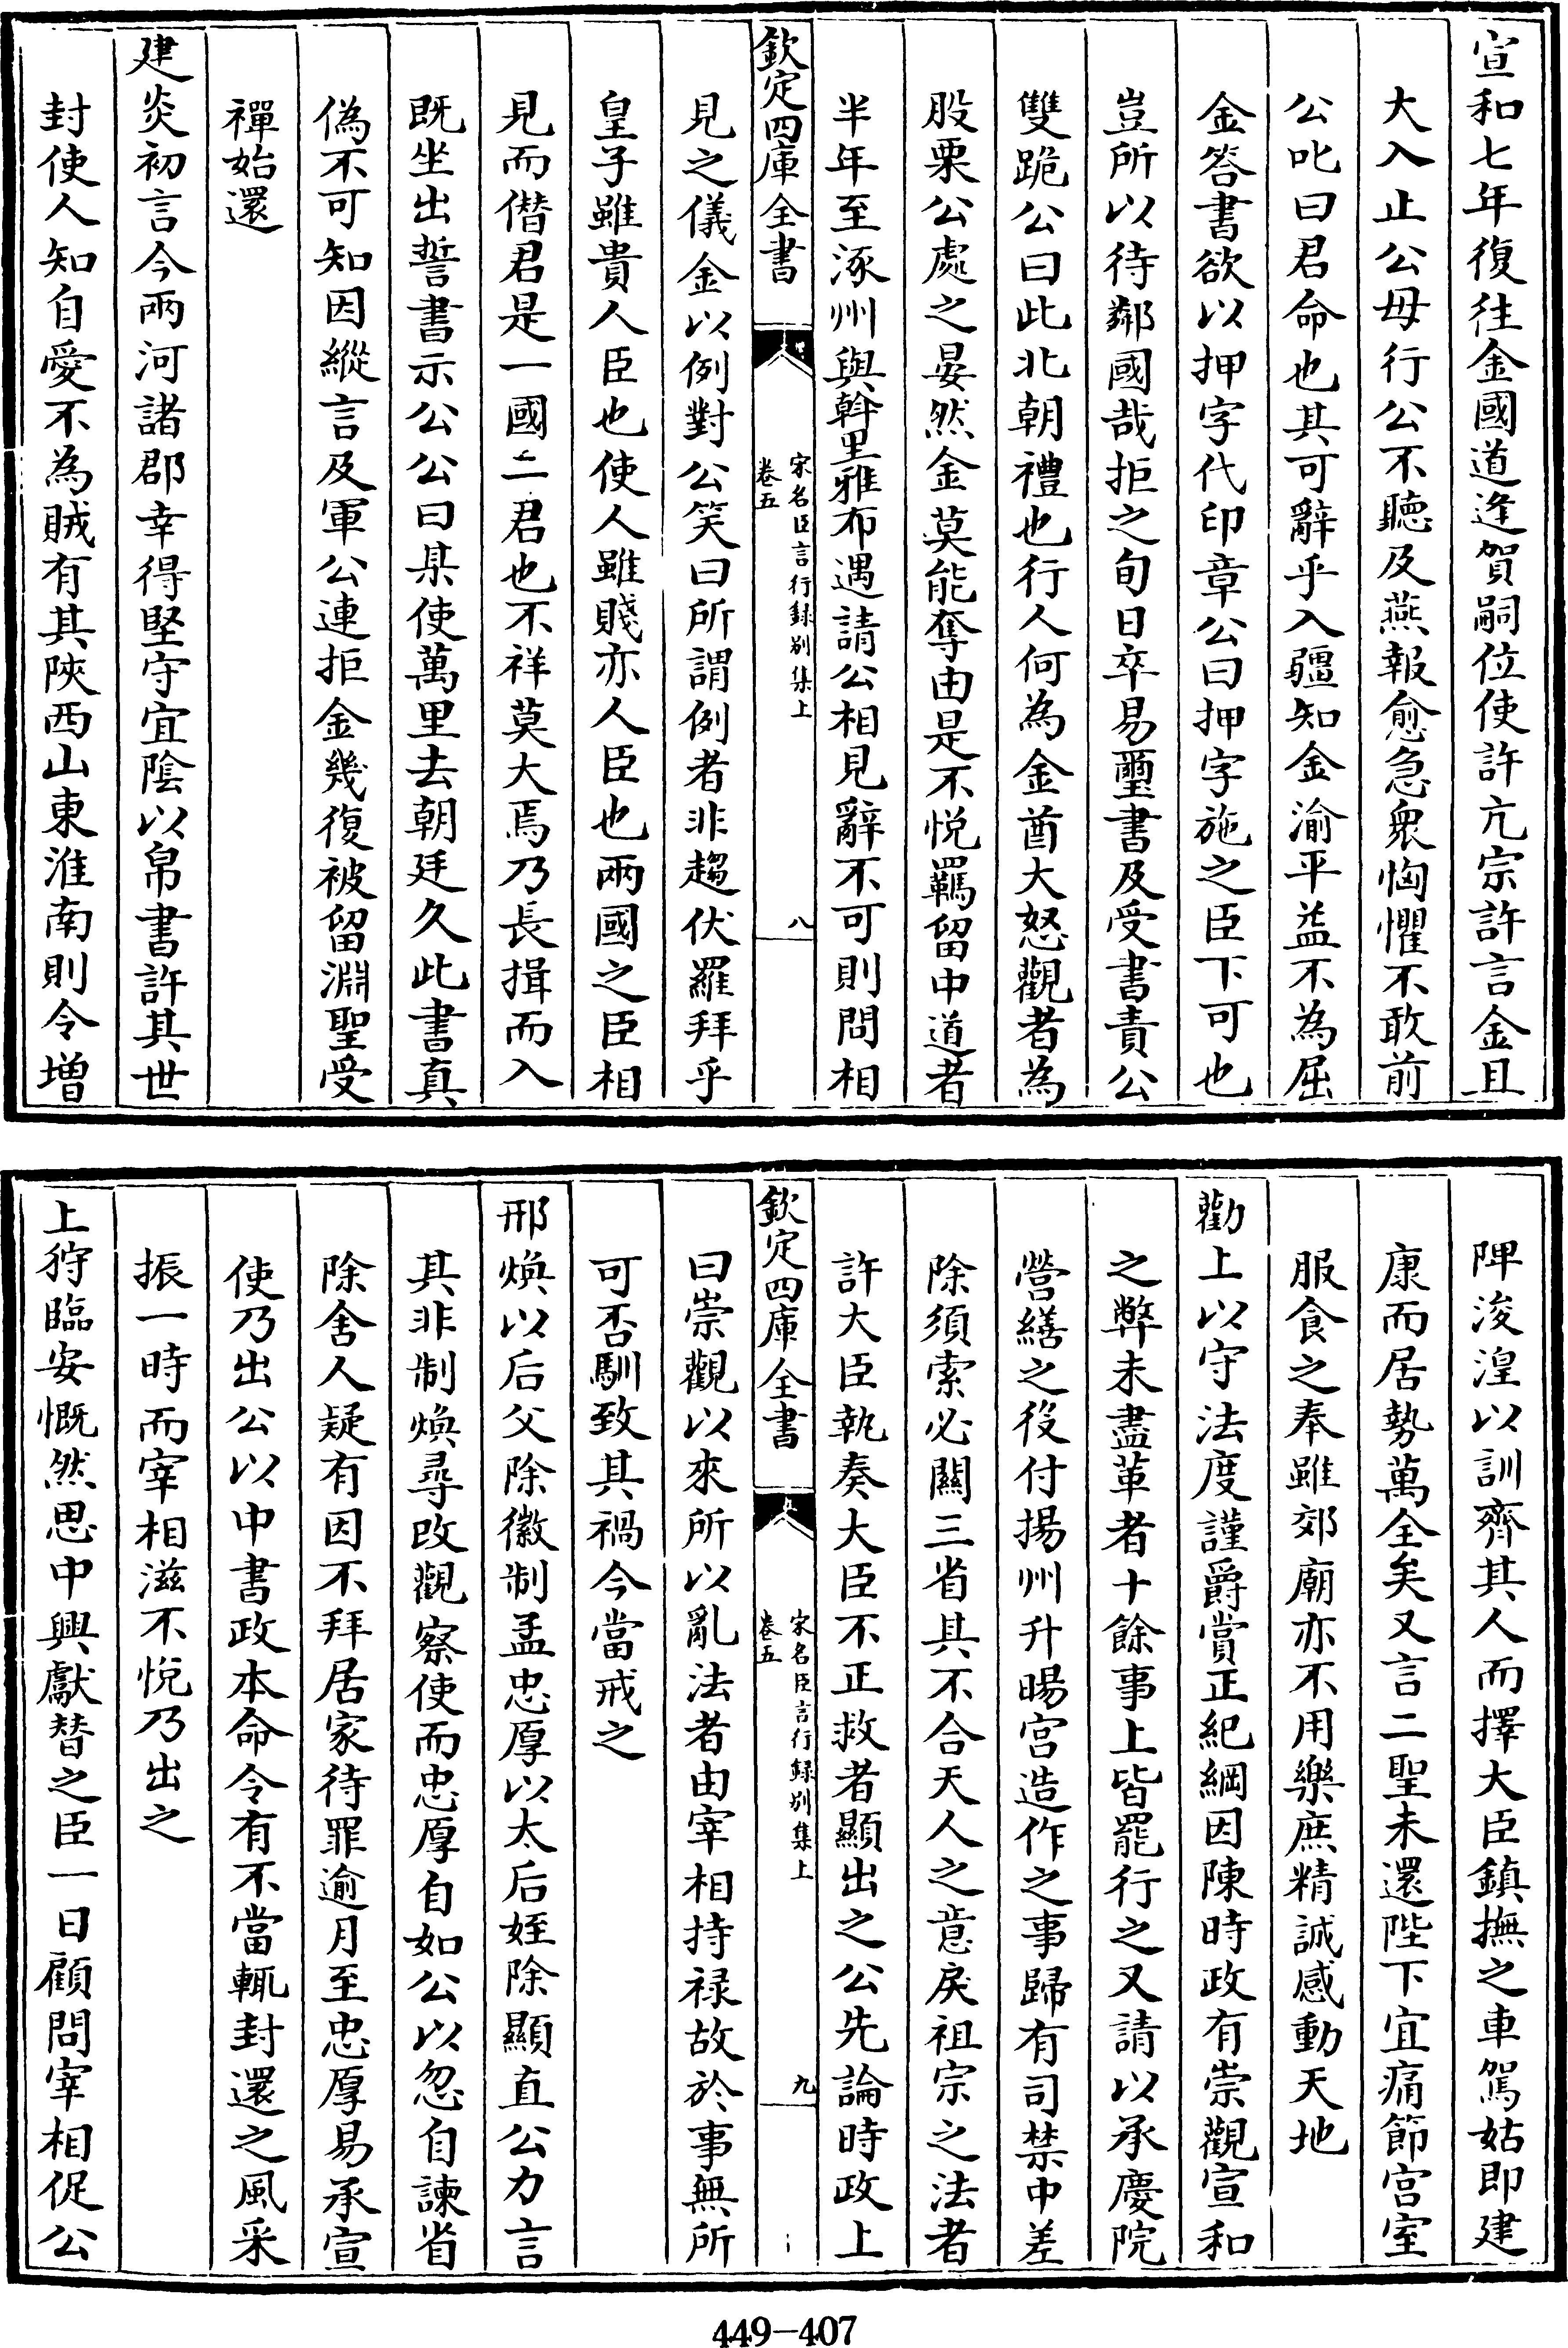 宣和七年復往金國道逢賀嗣位使許亢宗許言金且
大入止公毋行公不聽及燕報愈急衆恟懼不敢前
公叱曰君命也其可辭乎入疆知金渝平益不為屈
金答書欲以押字代印章公曰押字施之臣下可也
豈所以待鄰國哉拒之旬日卒易璽書及受書責公
雙跪公曰此北朝禮也行人何為金酋大怒觀者為
股栗公處之晏然金莫能奪由是不悦羈留中道者
半年至涿州與斡里雅布遇請公相見辭不可則問相
欽定四庫全書
宋名臣言行録别集上
卷五
八
見之儀金以例對公笑曰所謂例者非趨伏羅拜乎
皇子雖貴人臣也使人雖賤亦人臣也兩國之臣相
見而僭君是一國二君也不祥莫大焉乃長揖而入
既坐出誓書示公公曰某使萬里去朝廷久此書真
偽不可知因縱言及軍公連拒金幾復被留淵聖受
禪始還
建炎初言今兩河諸郡幸得堅守宜陰以帛書許其世
封使人知自愛不為賊有其陝西山東淮南則令增
陴浚湟以訓齊其人而擇大臣鎮撫之車駕姑即建
康而居勢萬全矣又言二聖未還陛下宜痛節宫室
服食之奉雖郊廟亦不用樂庶精誠感動天地
勸上以守法度謹爵賞正紀綱因陳時政有崇觀宣和
之弊未盡革者十餘事上皆罷行之又請以承慶院
營繕之役付揚州升暘宫造作之事歸有司禁中差
除須索必關三省其不合天人之意戾祖宗之法者
許大臣執奏大臣不正救者顯出之公先論時政上
欽定四庫全書
宋名臣言行録别集上
卷五
九
曰崇觀以來所以亂法者由宰相持禄故於事無所
可否馴致其禍今當戒之
邢煥以后父除徽制孟忠厚以太后姪除顯直公力言
其非制煥尋改觀察使而忠厚自如公以忽自諫省
除舍人疑有因不拜居家待罪逾月至忠厚易承宣
使乃出公以中書政本命令有不當輒封還之風采
振一時而宰相滋不悦乃出之
上狩臨安慨然思中興獻替之臣一日顧問宰相促公
449-407